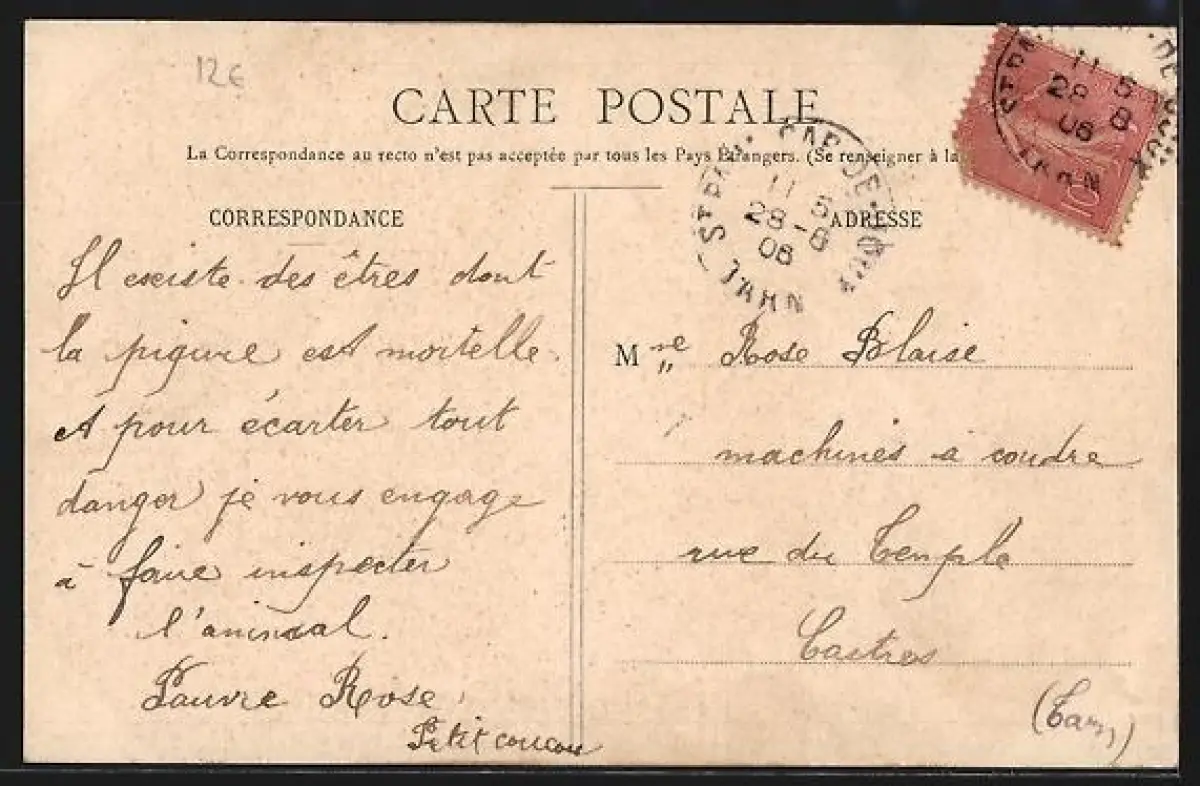 12€
CARTE POSTALE
La Correspondance au recto n'est pas acceptée par tous les Pays Étrangers. (Se renseigner à la
CORRESPONDANCE
Il existe des êtres dont
la piqure est mortelle.
et pour écarter tout
danger je vous engage
à faire inspecter
l'animal.
Pauvre Rose
Petit coucou
ADRESSE
Mme Rose Blaise
"
machines à coudre
rue du Temple
Castres
(Tarn)
ST PAUL CAP DE JOUX
11 5
28 -8
06
TARN
ST PAUL CAP DE JOUX
11 5
28 8
06
TARN
10